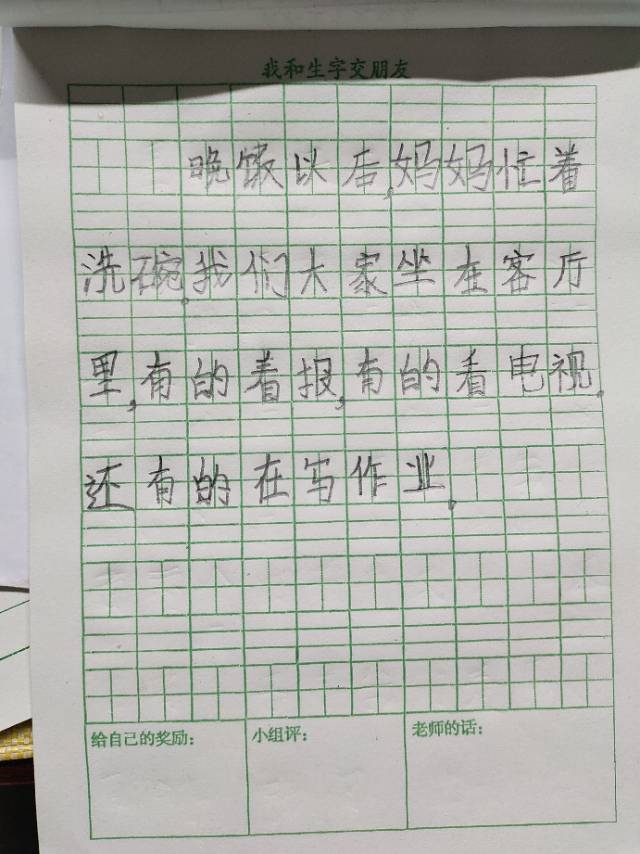 我和生字交朋友
晚饭以后,妈妈忙着
洗碗。我们大家坐在客厅
里,有的着报,有的看电视,
还有的在写作业。
给自己的奖励: 小组评: 老师的话: